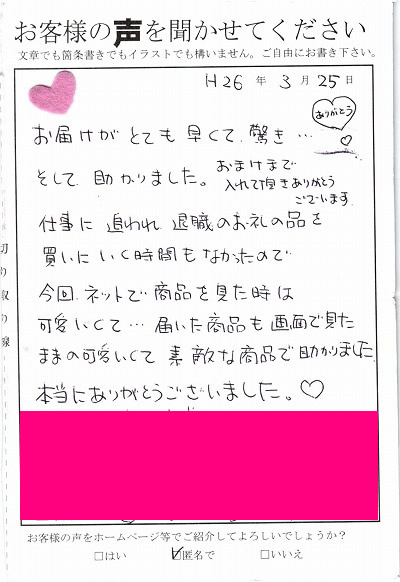 お客様の声を聞かせてください
文章でも箇条書きでもイラストでも構いません。ご自由にお書き下さい。
H26 年 3 月 25 日
ありがとう
お届けが とても 早くて 驚き…
そして 助かりました。
おまけまで
入れて頂きありがとう
ございます
仕事に 追われ 退職のお礼の品を
買いに いく時間もなかったので
今回 ネットで 商品を見た時は
可愛いくて… 届いた商品も 画面で見た
ままの可愛いくて 素敵な商品で助かりました
本当にありがとうございました。♡
切り取り線
お客様の声をホームページ等でご紹介してよろしいでしょうか？
□はい ☑匿名で □いいえ